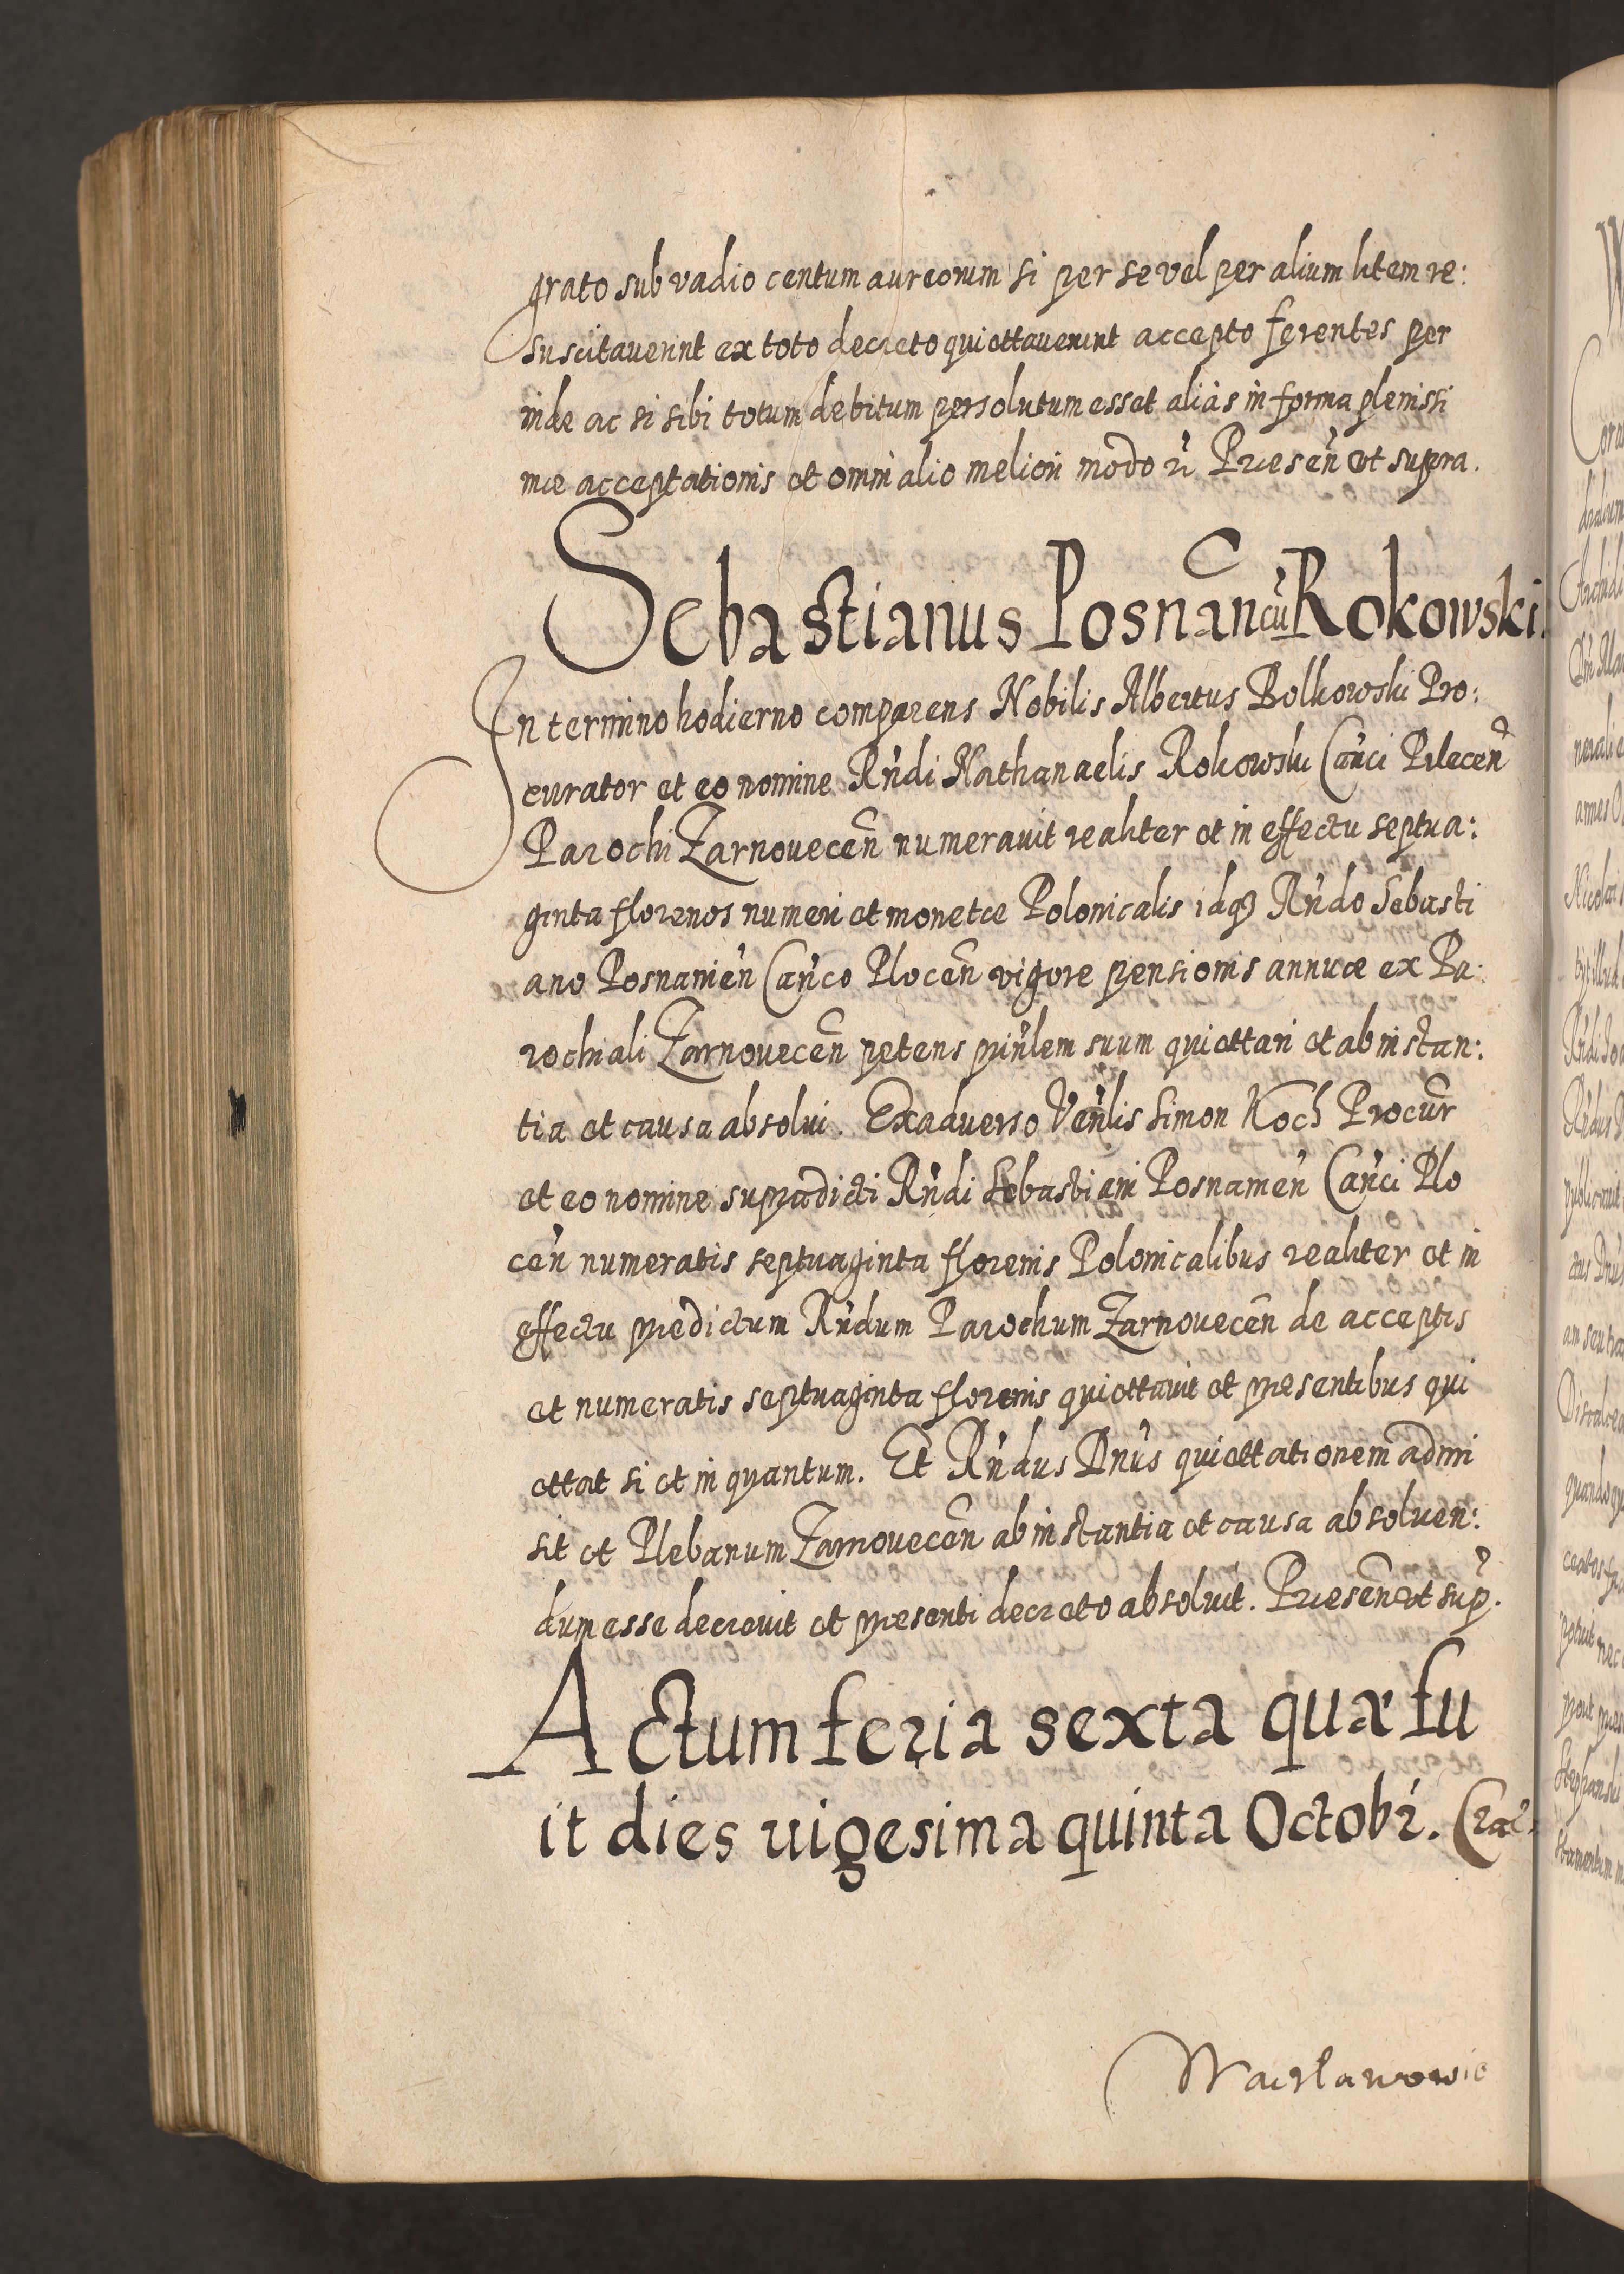 grato sub vadio centum aureorum si per se vel per alium litem re:
suscitaverint ex toto decreto quiettaverint accepto ferentes per
inde ac si sibi totum debitum persolutum esset aliàs in forma plenissi
mæ acceptationis et omni alio meliori modo Præseñ ut supra.
Sebastianus Posnan̄ cū Rokowski.
In termino hodierno comparens Nobilis Albertus Bolkowski Pro:
curator et eo nomine Rn̄di Nathanaelis Rokowski Can̄ci Pilecen̄
Parochi Zarnovecen̄ numeravit realiter et in effectu septua:
ginta florenos numeri et monetæ Polonicalis idq3 Rn̄do Sebasti
ano Posnanien̄ Can̄co Plocen̄ vigore pensionis annuæ ex Pa:
rochiali Zarnovecen̄ petens prin̄lem suum quiettari et ab instan:
tia et causa absolvi. Exadverso Ven̄lis Simon Koch Procur̄
et eo nomine supradicti Rn̄di Sebastiani Posnanien̄ Can̄ci Plo
cen̄ numeratis septuaginta florenis Polonicalibus realiter et in
effectu prædictum Rn̄dum Parochum Zarnovecen̄ de acceptis
et numeratis septuaginta florenis quiettavit et præsentibus qui
ettat si et in quantum. Et Rn̄dus Dn̄us quiettationem admi
sit et Plebanum Zarnovecen̄ ab instantia et causa absolven:
dum esse decrevit et præsenti decreto absolvit. Præsen̄ ut sup.
Actum feria sexta quæ fu
it dies vigesima quinta Octobr. Crac.